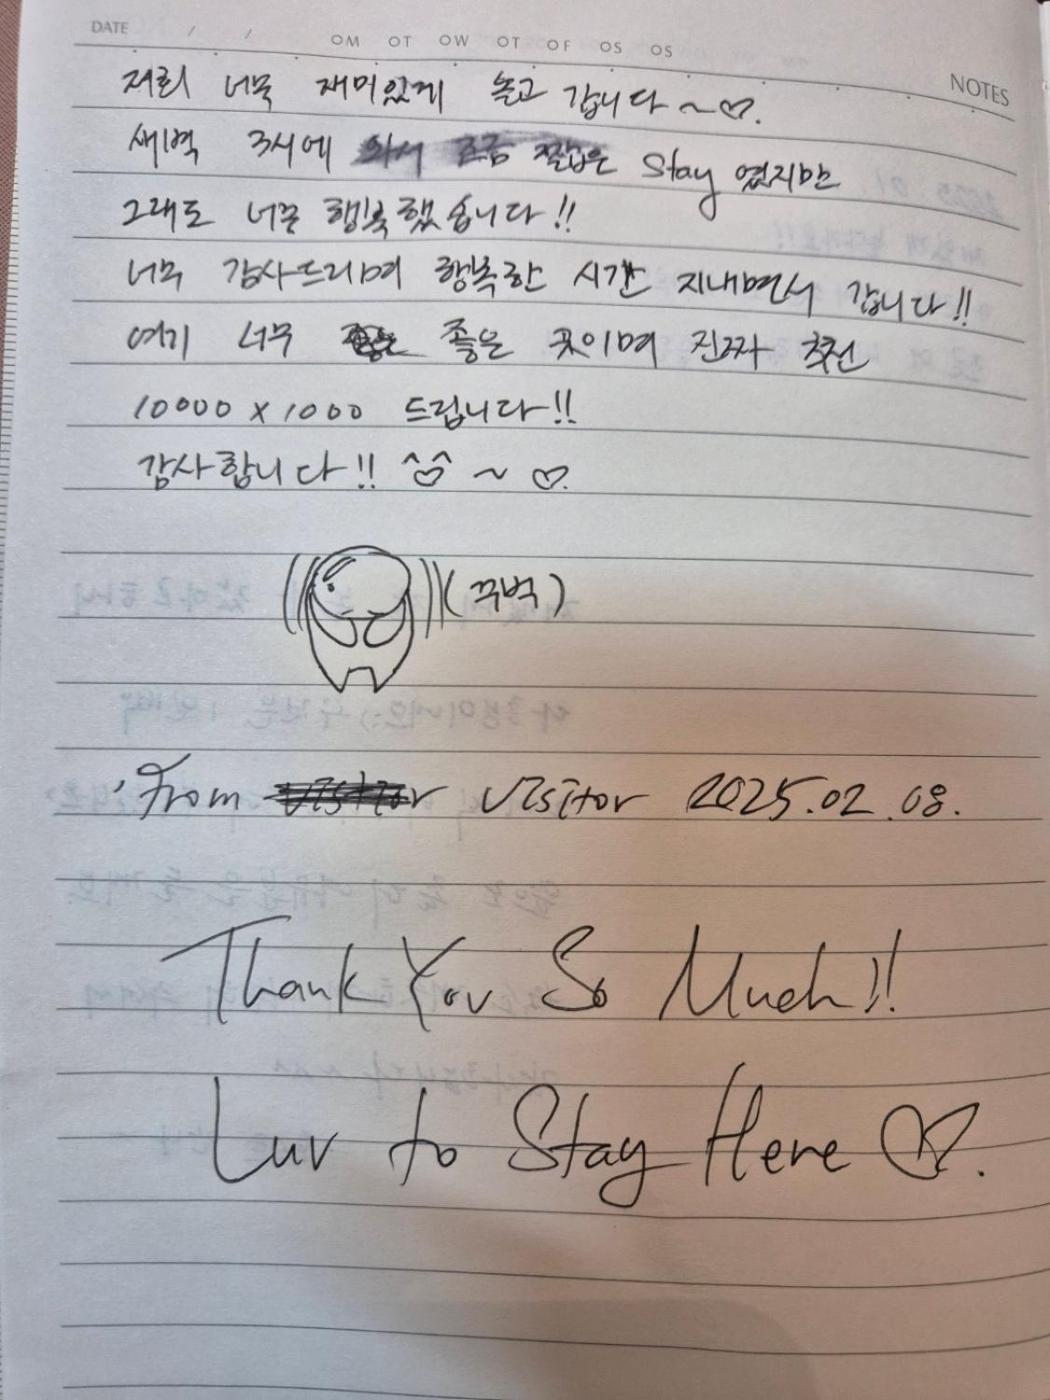 DATE / /
OM OT OW OT OF OS OS
NOTES
저희 너무 재미있게 놀고 갑니다~♡.
새벽 3시에 와서 조금 짧은 Stay 였지만
그래도 너무 행복했습니다!!
너무 감사드리며 행복한 시간 지내면서 갑니다!!
여기 너무 좋은 곳이며 진짜 추천
10000 x 1000 드립니다!!
감사합니다!! ^^ ~ ♡.
(꾸벅)
From Visitor 2025.02.08.
Thank You So Much!!
Luv to Stay Here ♡.